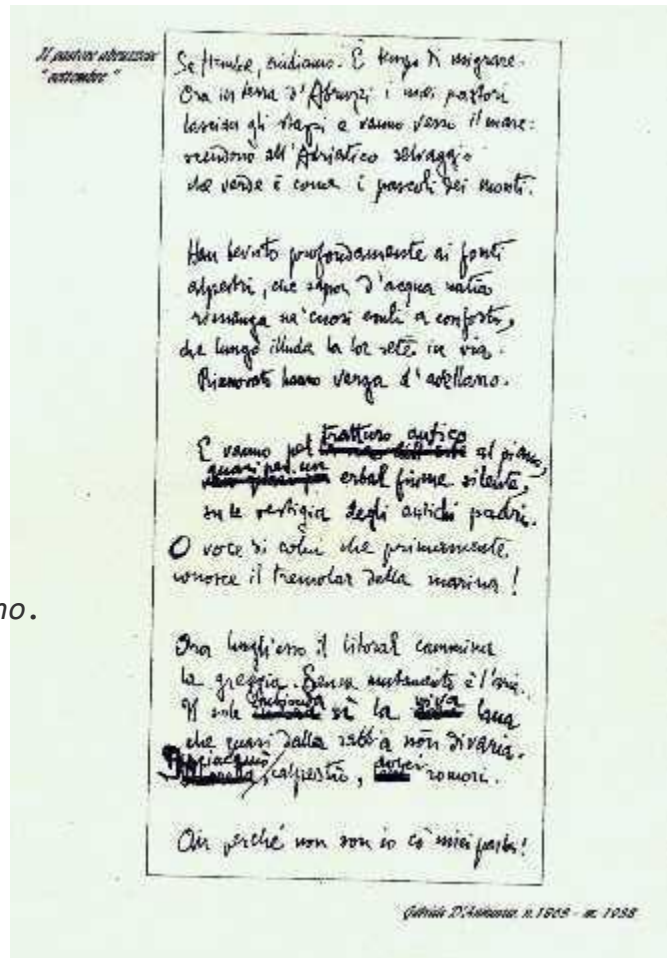 Il pastore abruzzese
"settembre"
Settembre, andiamo. È tempo di migrare.
Ora in terra d'Abruzzi i miei pastori
lascian gli stazzi e vanno verso il mare:
scendono all'Adriatico selvaggio
che verde è come i pascoli dei monti.
Han bevuto profondamente ai fonti
alpestri, che sapor d'acqua natia
rimanga ne' cuori esuli a conforto,
che lungo illuda la lor sete in via.
Rinnovato hanno verga d'avellano.
E vanno pel tratturo antico al piano,
quasi per un erbal fiume silente,
su le vestigia degli antichi padri.
O voce di colui che primamente
conosce il tremolar della marina!
no.
Ora lungh'esso il litoral cammina
la greggia. Senza mutamento è l'aria.
Il sole imbionda sì la viva lana
che quasi dalla sabbia non divaria.
Isciacquìo, calpestìo, dolci romori.
Ah perché non son io co' miei pastori!
Gabriele D'Annunzio, n. 1863 - m. 1938